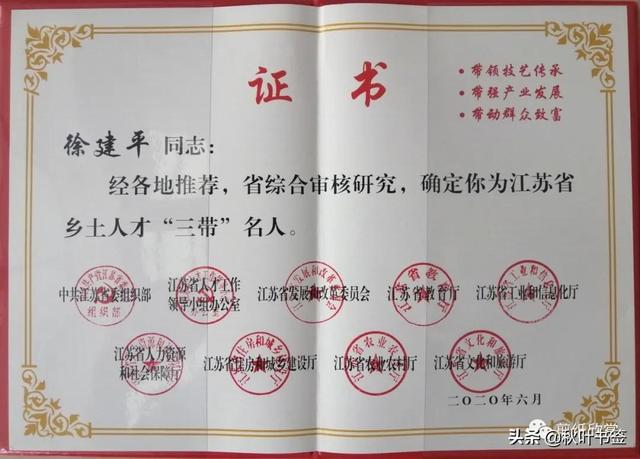 证书
• 带领技艺传承
• 带强产业发展
• 带动群众致富
徐建平 同志：
经各地推荐，省综合审核研究，确定你为江苏省
乡土人才“三带”名人。
中共江苏省委组织部
江苏省人才工作
领导小组办公室
江苏省发展和改革委员会
江苏省教育厅
江苏省工业和信息化厅
江苏省人力资源
和社会保障厅
江苏省住房和城乡建设厅
江苏省农业农村厅
江苏省文化和旅游厅
二〇二〇年六月
剪纸欣赏
头条@秋叶书签